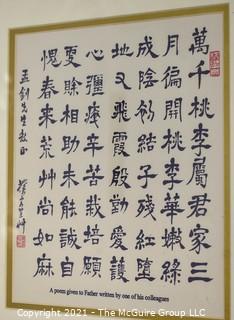 萬千桃李屬君家三
月徧開桃李華嫩綠
成陰初結子殘紅墮
地又飛霞殷勤愛護
心彌瘁辛苦栽培願
更賒相助未能誠自
愧春來荒艸尚如麻
孟劍先生教正
A poem given to Father written by one of his colleagues
Copyright © 2021 - AuctionNinja